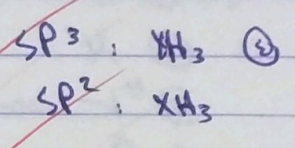 SP³ : XH₃
SP² : XH₃